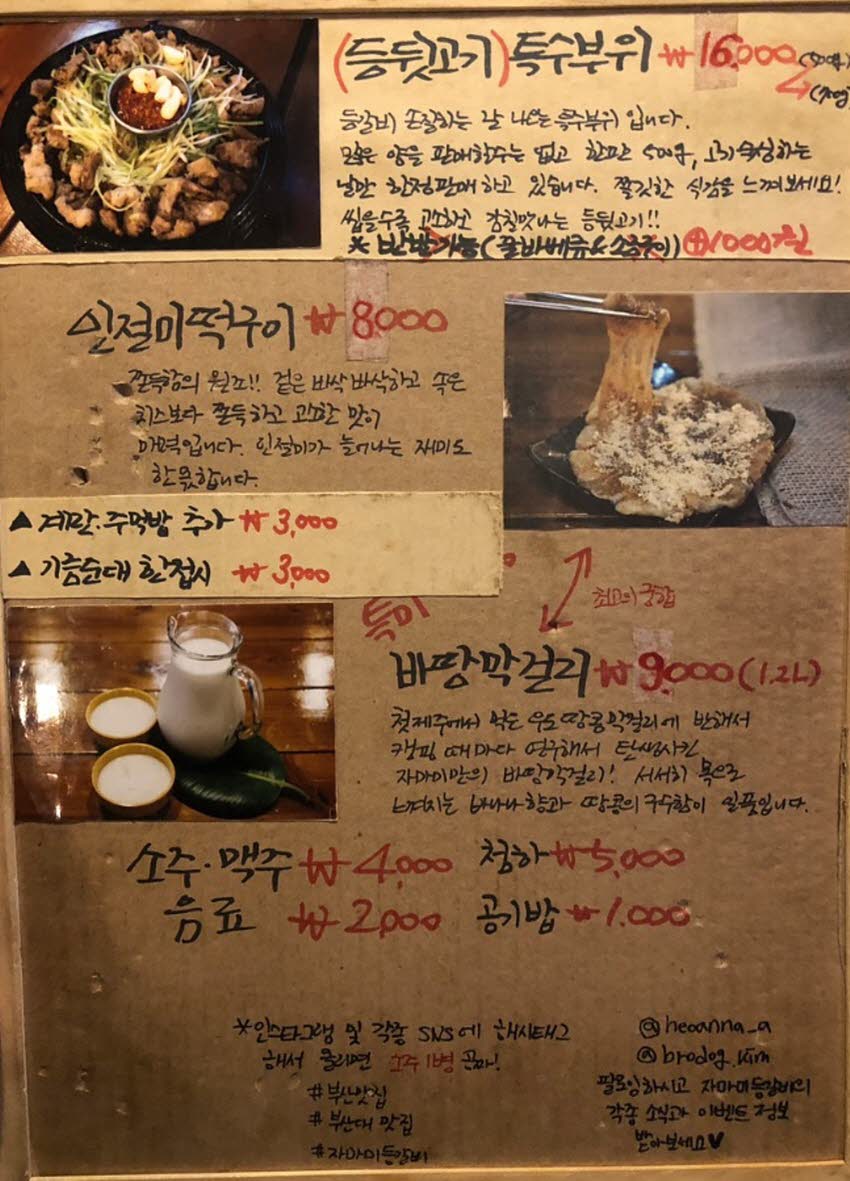 (등뒷고기)특수부위 ₩16,000(500g)
등갈비 손질하는 날 나오는 특수부위 입니다.
많은 양을 판매할수는 없고 한판 500g, 고기 숙성하는
날만 한정판매 하고 있습니다. 쫄깃한 식감을 느껴보세요!
씹을수록 고소하고 감칠맛나는 등뒷고기!!
※ 반반가능( & 소금구이) ⊕1000원
인절미떡구이 ₩8,000
쫀득함의 원조!! 겉은 바삭바삭하고 속은
치즈보다 쫀득하고 고소한 맛이
매력입니다. 인절미가 늘어나는 재미도
한몫합니다.
▲ 계란.주먹밥 추가 ₩3,000
▲ 기름순대 한접시 ₩3,000
특미
최고의 궁합
바땅막걸리 ₩9,000(1.2L)
첫제주에서 먹은 우도 땅콩막걸리에 반해서
캠핑 때마다 연구해서 탄생시킨
자마미만의 바땅막걸리! 서서히 목으로
느껴지는 바나나향과 땅콩의 구수함이 일품입니다.
소주·맥주 ₩4,000 청하 ₩5,000
음료 ₩2,000 공기밥 ₩1,000
※인스타그램 및 각종 SNS에 해시태그
해서 올리면 소주1병 공짜!
#부산맛집
#부산대 맛집
#자마미등갈비
@heoanna_a
@brodog.kim
팔로잉하시고 자마미등갈비의
각종 소식과 이벤트 정보
받아보세요♥